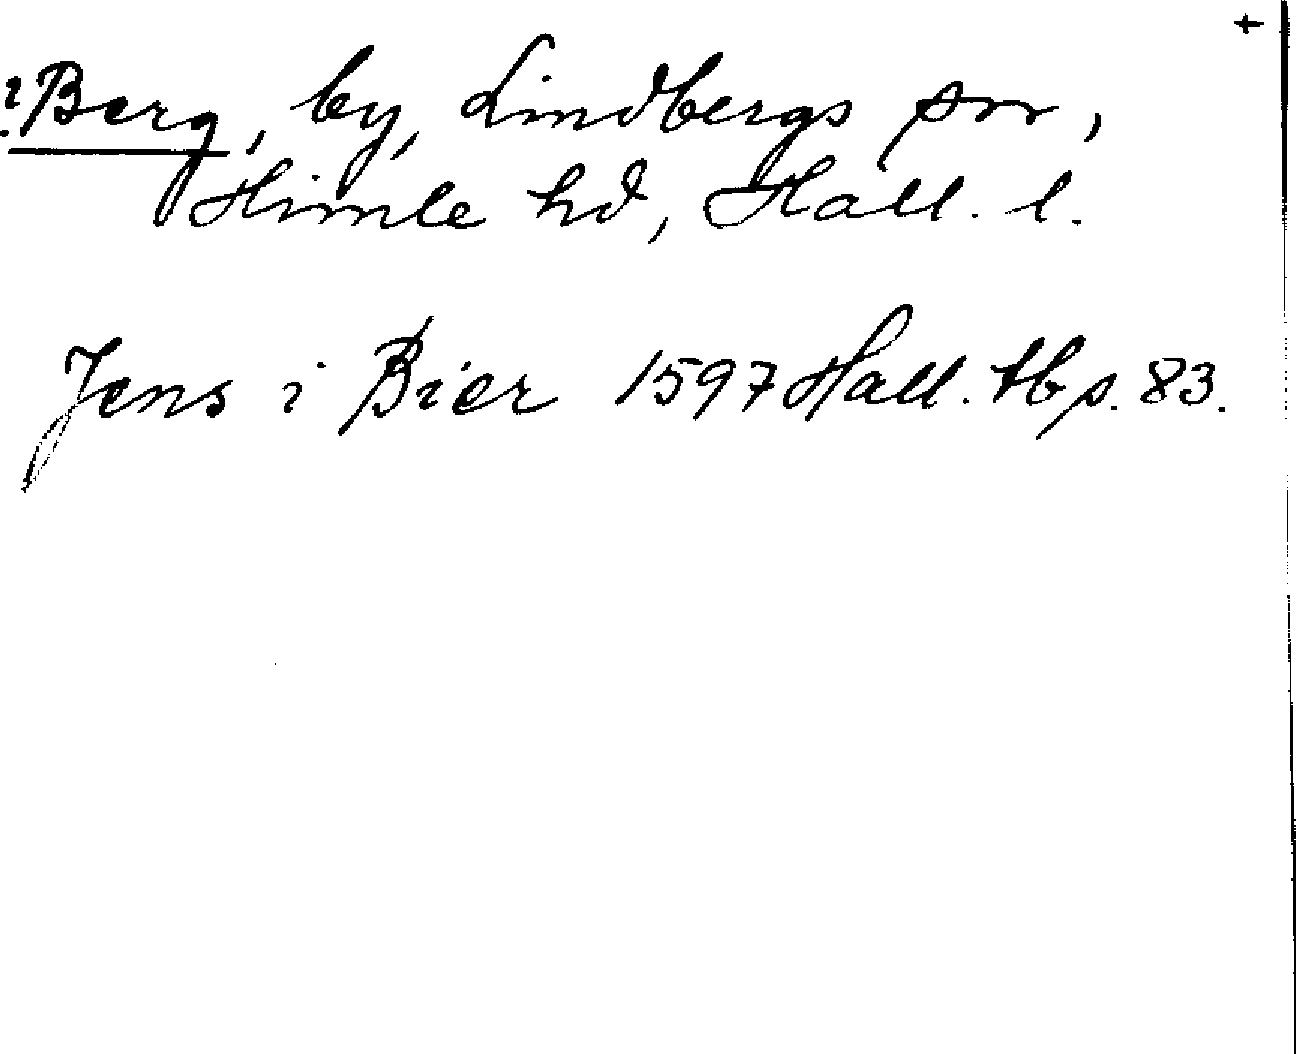 +
?Berg, by, Lindbergs snr,
Himle hd, Hall. l.
Jens i Bier 1597 Hall. tb s. 83.